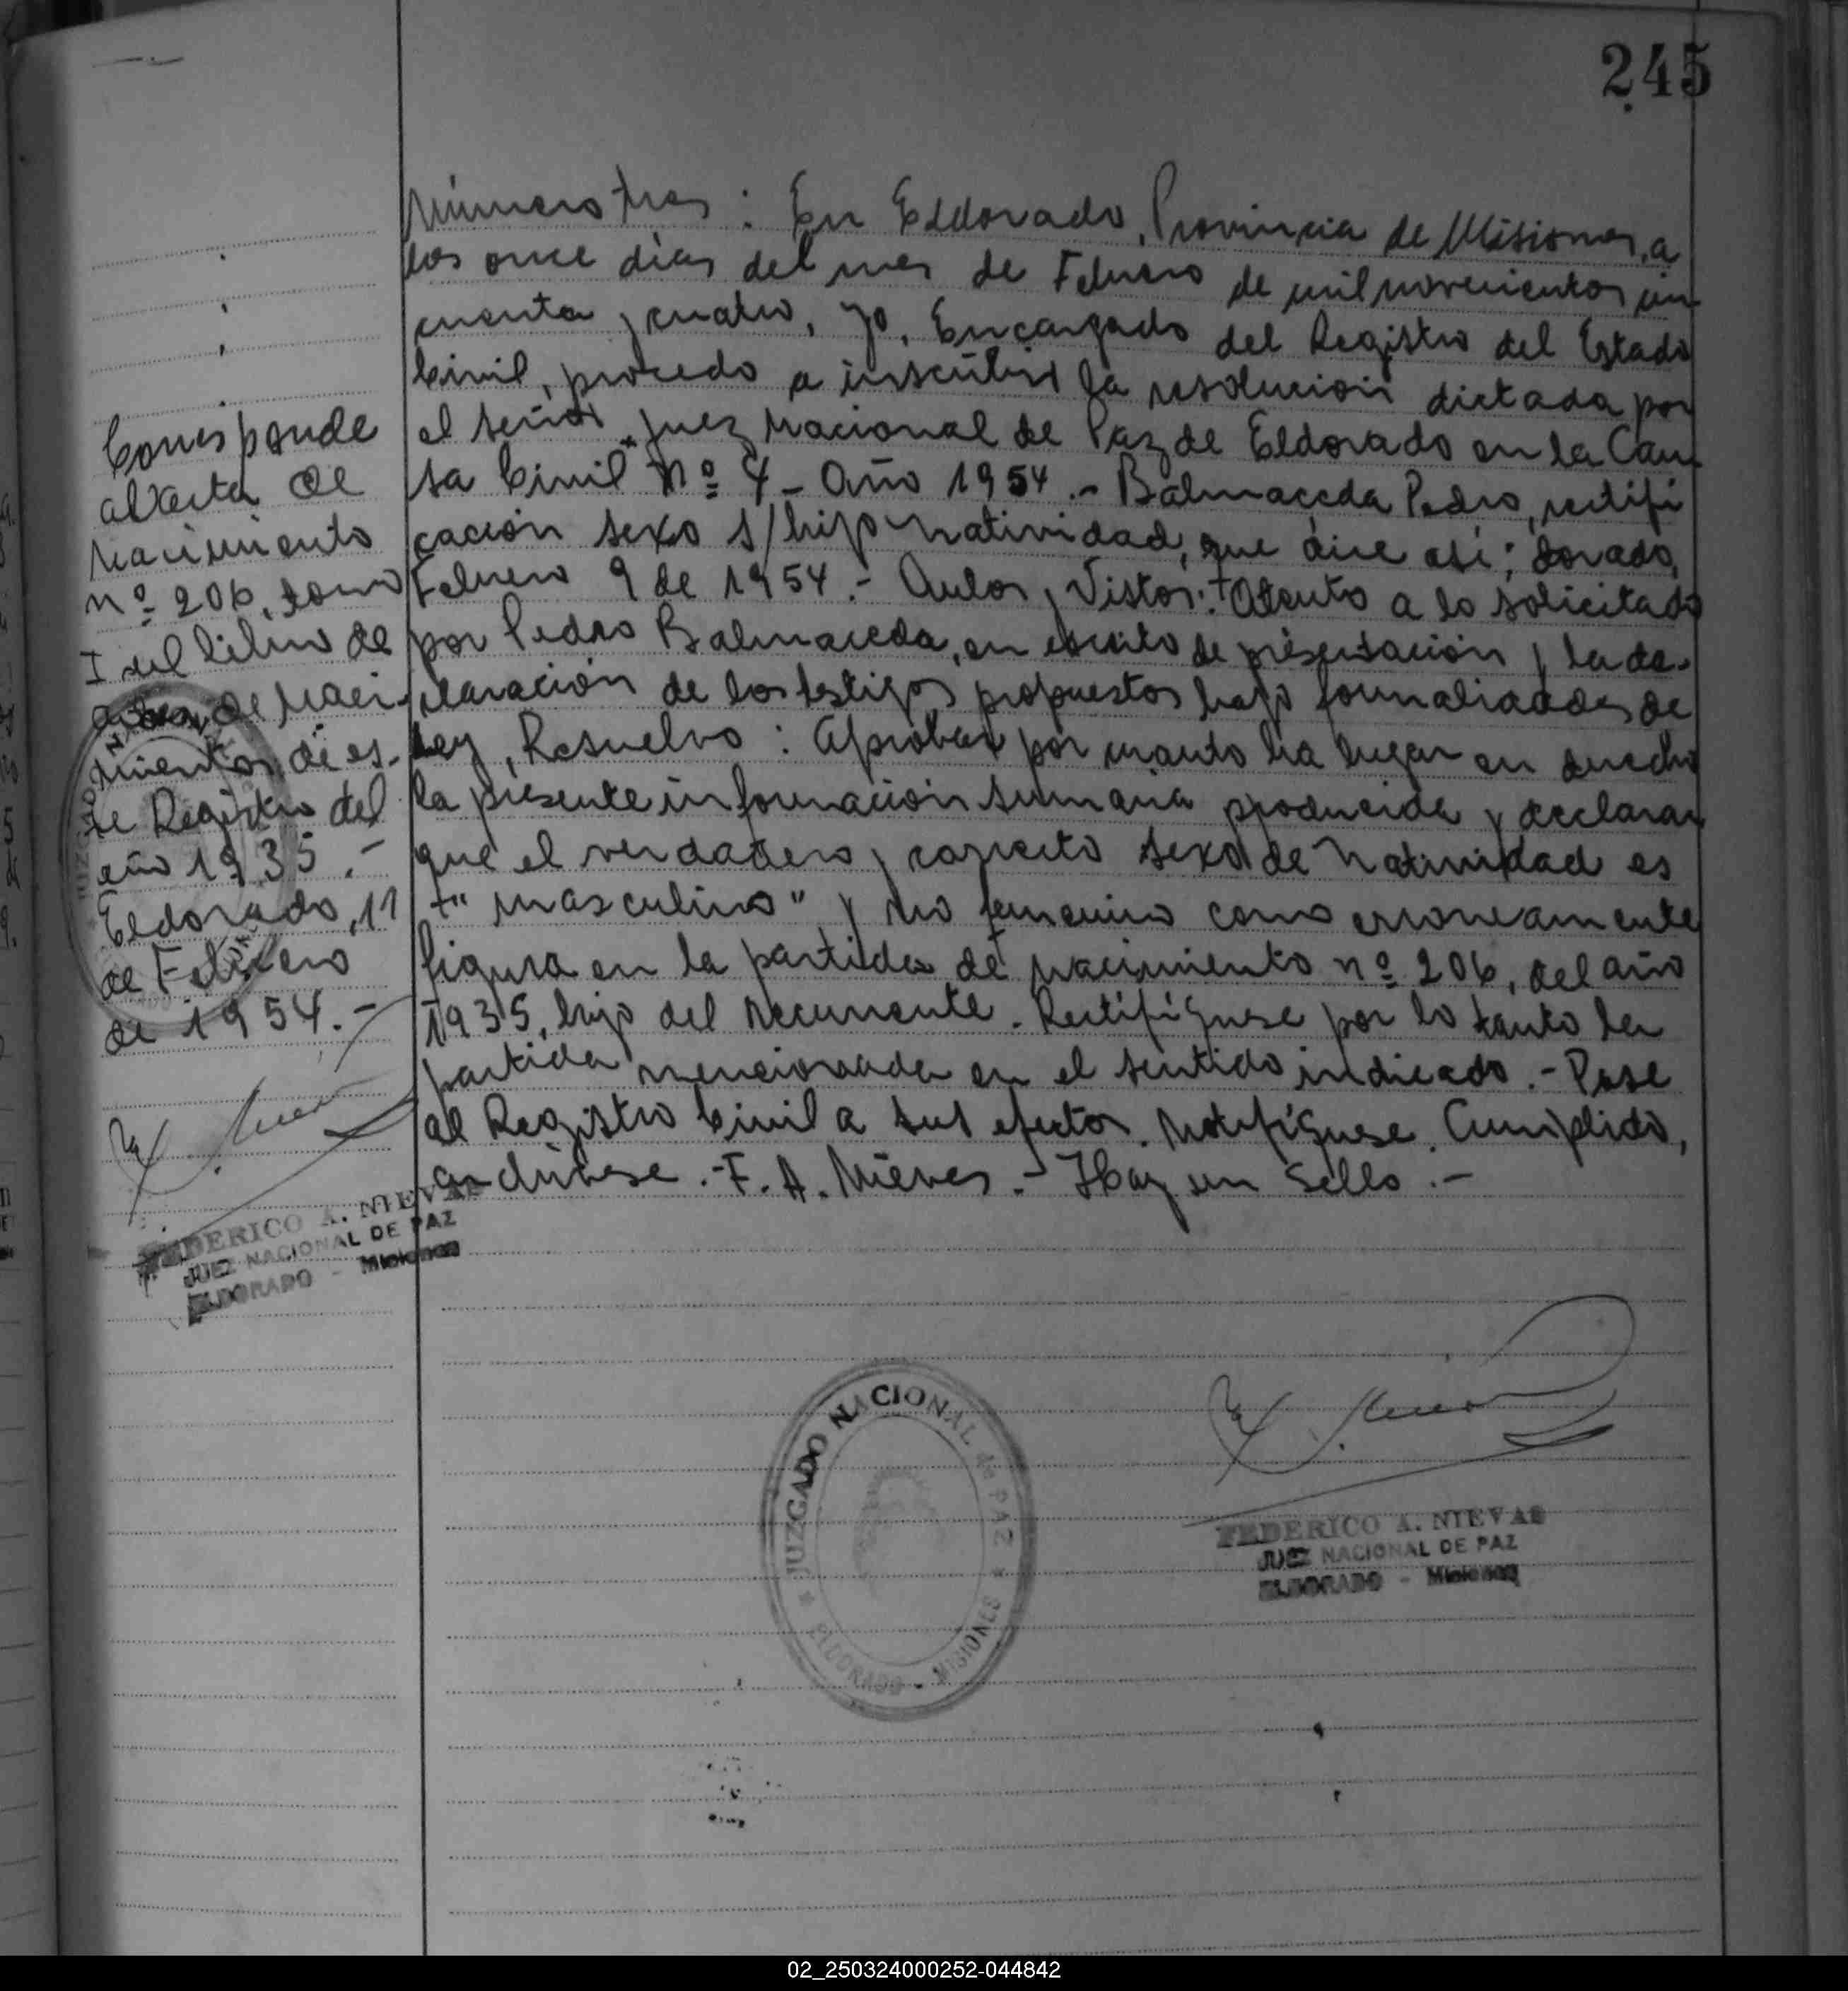 245
Número tres : En Eldorado, Provincia de Misiones, a
los once días del mes de Febrero de mil novecientos cin
cuenta y cuatro, yo, Encargado del Registro del Estado
Civil, procedo a inscribir la resolución dictada por
el señor Juez Nacional de Paz de Eldorado en la Cau
sa Civil Nº 4 - Año 1954 .- Balmaceda Pedro, rectifi
cación sexo s/hijo Natividad, que dice así: Dorado,
Febrero 9 de 1954 .- Autos y Vistos: Atento a lo solicitado
por Pedro Balmaceda, en escrito de presentación y la de-
claración de los testigos propuestos bajo formalidades de
Ley, Resuelvo : Aprobar por cuanto ha lugar en derecho
la presente información sumaria producida y declarar
que el verdadero y correcto sexo de Natividad es
"masculino" y no femenino como erroneamente
figura en la partida de nacimiento nº 206, del año
1935, hijo del recurrente. Rectifíquese por lo tanto la
partida mencionada en el sentido indicado .- Pase
al Registro Civil a sus efectos. Notifíquese. Cumplido,
archívese .- F. A. Nieves .- Hay un Sello .-
Corresponde
al acta de
Nacimiento
nº 206, tomo
I del libro de
de Naci-
mientos de es-
te Registro del
año 1935 .-
Eldorado, 11
de Febrero
de 1954 .-
FEDERICO A. NIEVAS
JUEZ NACIONAL DE PAZ
ELDORADO - Misiones
JUZGADO NACIONAL de PAZ
ELDORADO - MISIONES
FEDERICO A. NIEVAS
JUEZ NACIONAL DE PAZ
ELDORADO - Misiones
02_250324000252-044842